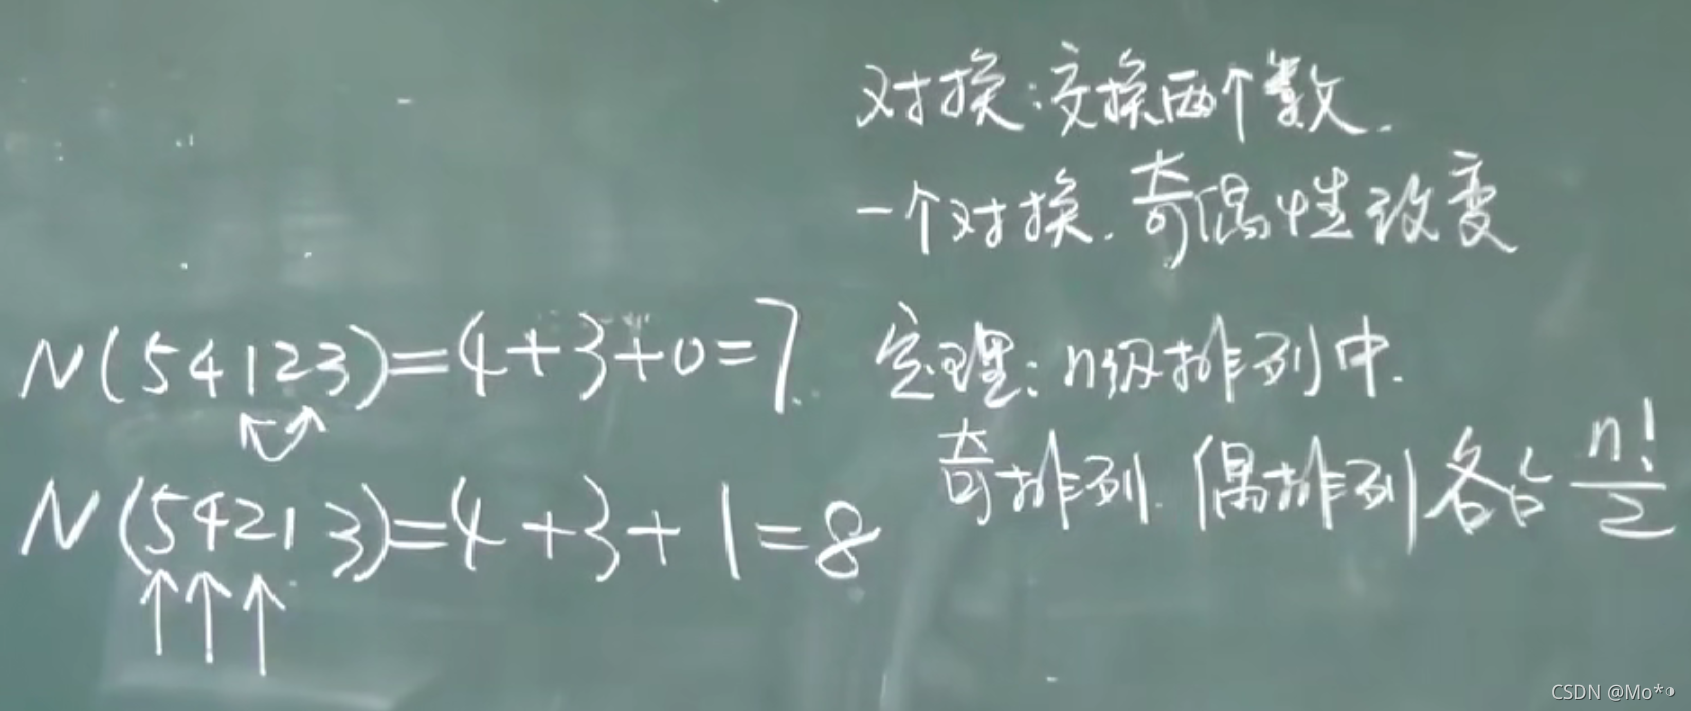 对换:交换两个数.
一个对换.奇偶性改变
N(54123)=4+3+0=7.
定理:n级排列中.
奇排列.偶排列各占 n!/2
N(54213)=4+3+1=8
CSDN @Mo*